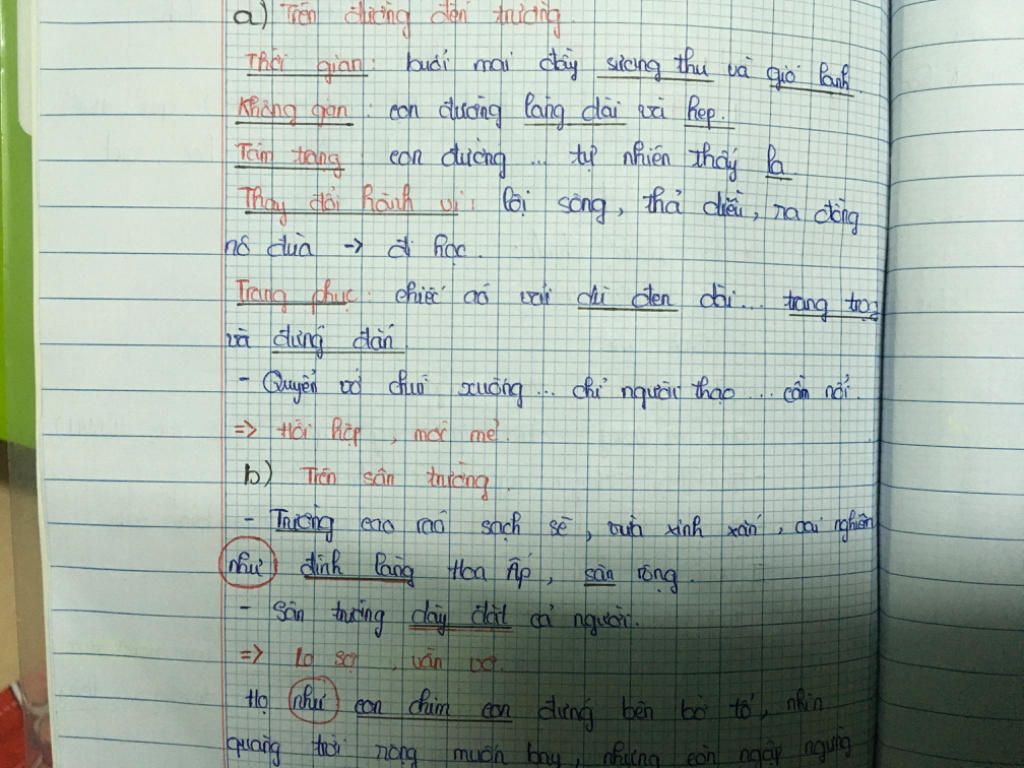 a) Trên đường đến trường.
Thời gian: buổi mai đầy sương thu và gió lạnh.
Không gian: con đường làng dài và hẹp.
Tâm trạng con đường ... tự nhiên thấy lạ
Thay đổi hành vi: lội sông, thả diều, ra đồng
nô đùa -> đi học.
Trang phục: chiếc áo vải dù đen dài... trang trọng
và đứng đắn
- Quyển vở chúi xuống ... chỉ người thạo ... cầm nổi.
=> Hồi hộp, mới mẻ.
b) Trên sân trường.
- Trường cao ráo sạch sẽ, vừa xinh xắn, oai nghiêm
như đình làng Hoà Ấp, sân rộng.
- Sân trường dày đặt cả người.
=> Lo sợ, vẩn vơ.
Họ như con chim con đứng bên bờ tổ, nhìn
quãng trời rộng muốn bay, nhưng còn ngập ngừng